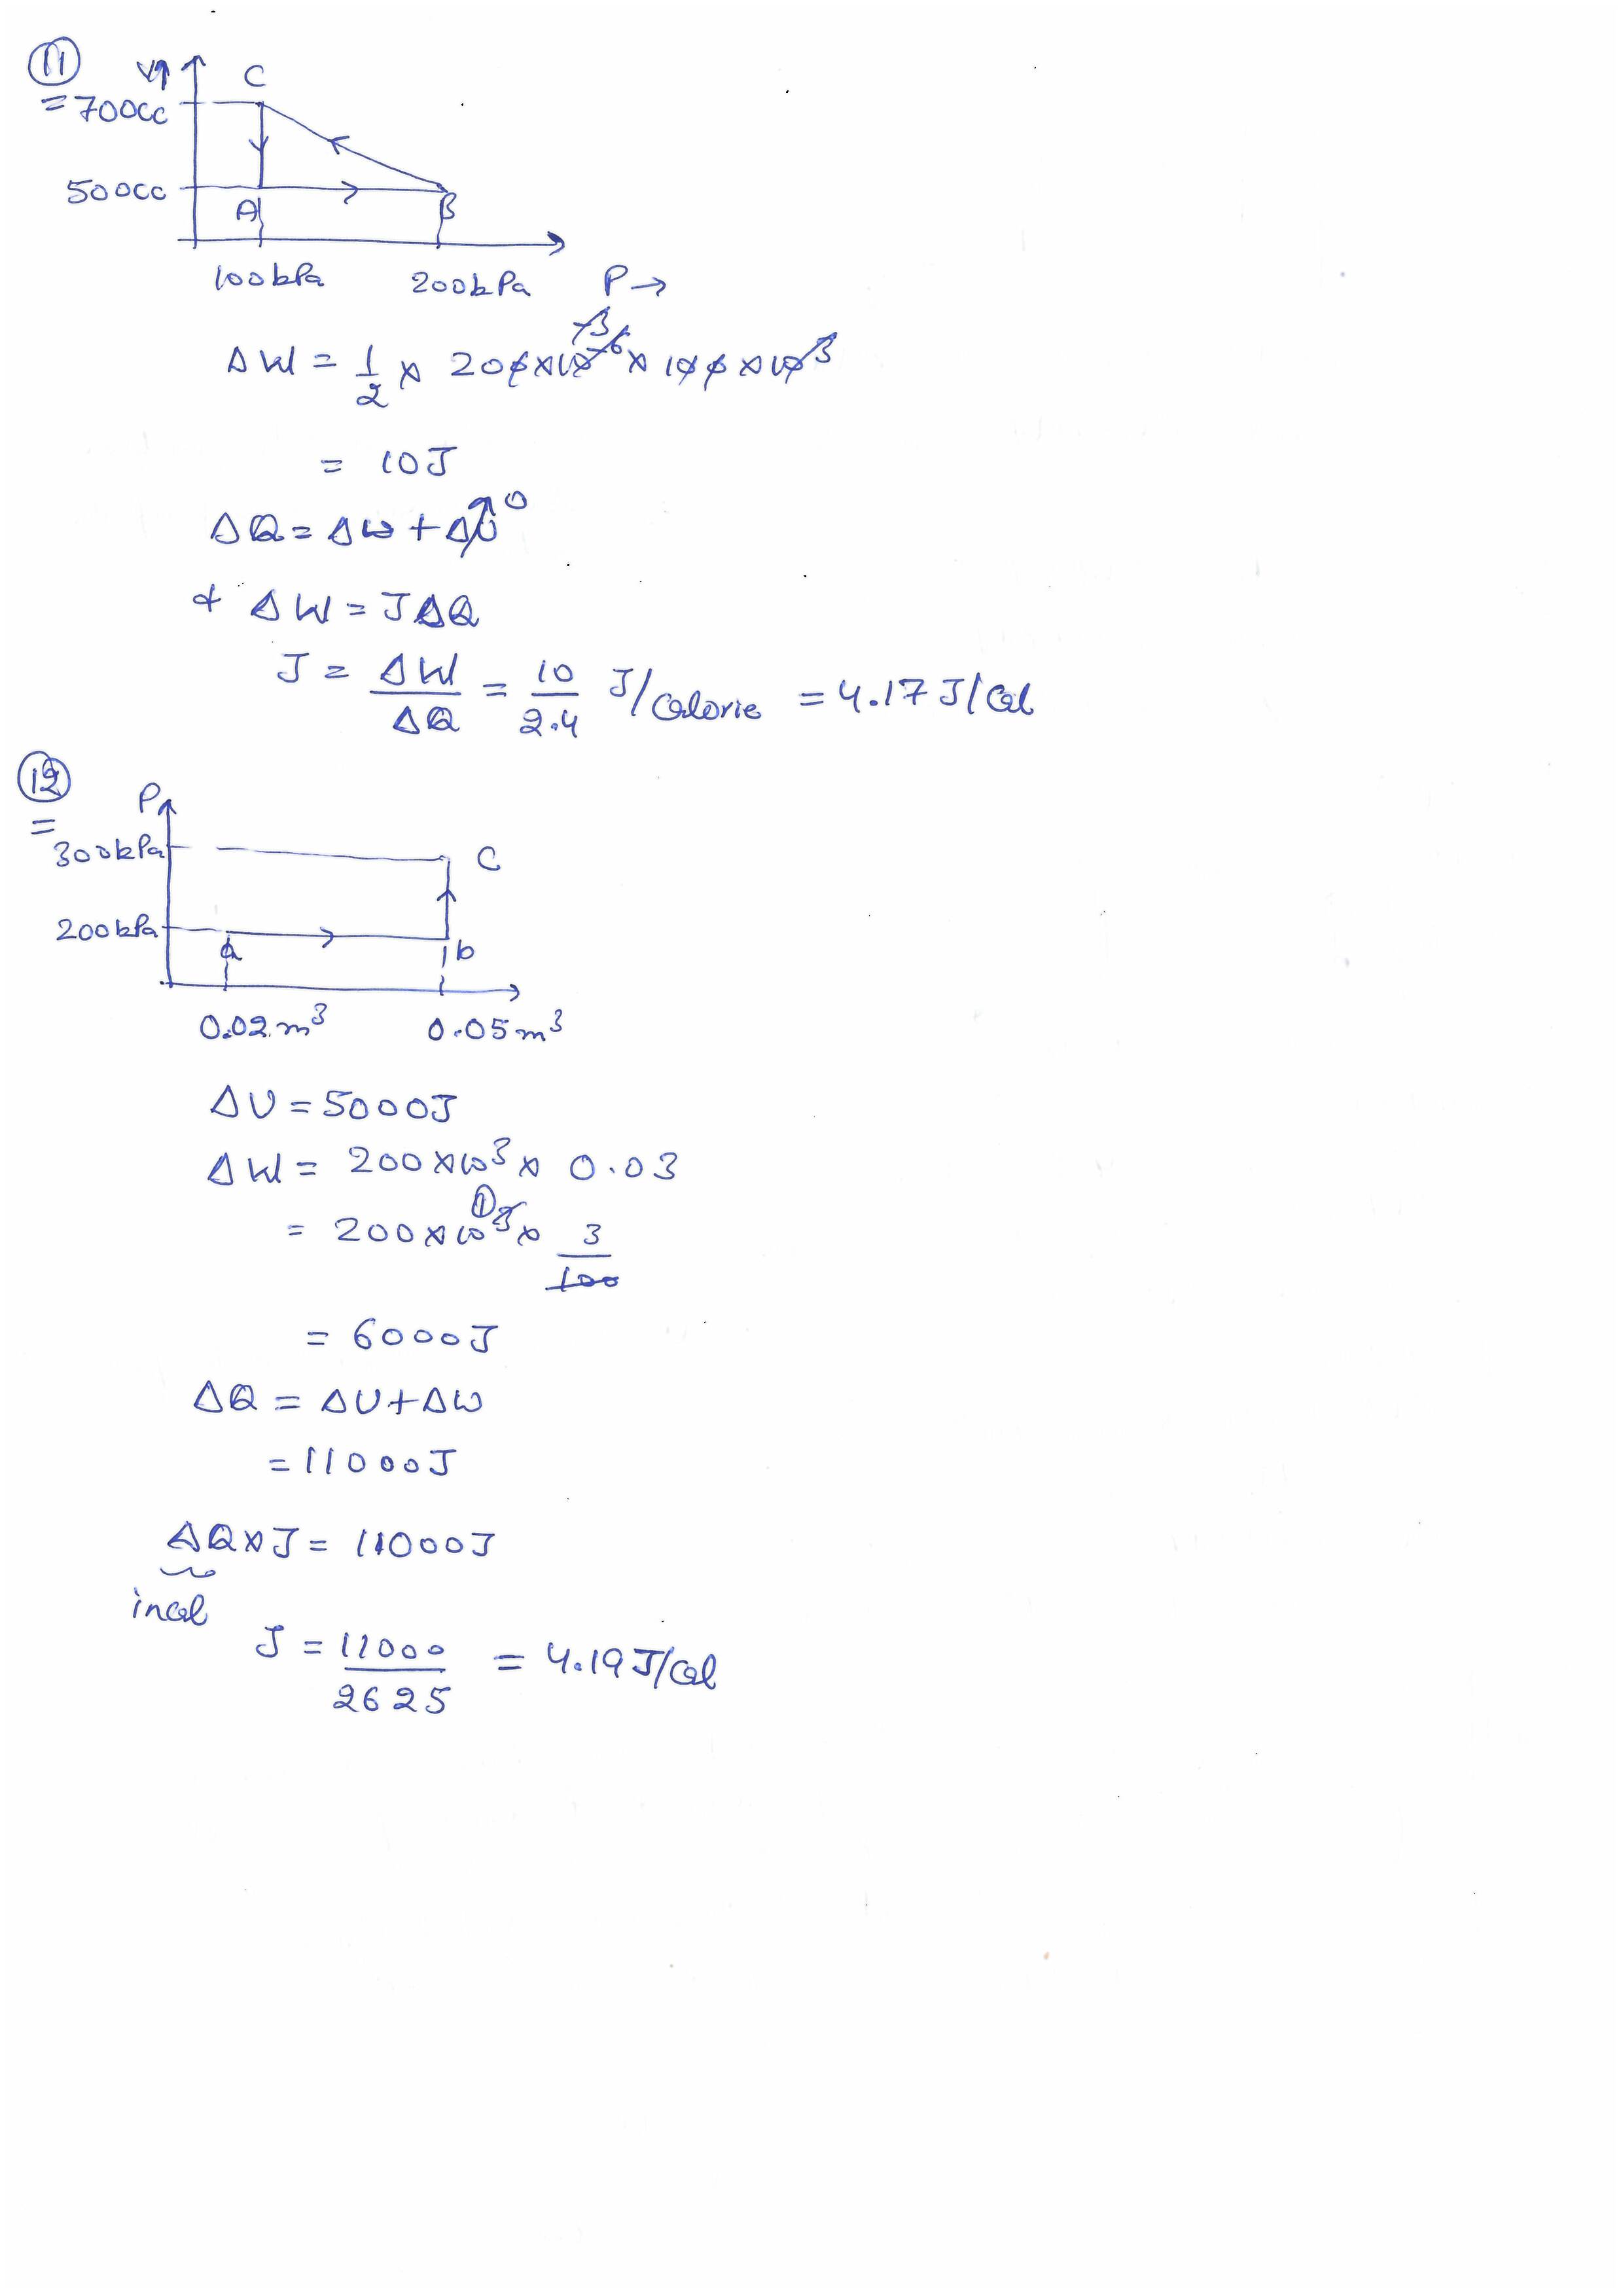 11
V↑ C
= 700cc
500cc
A B
100kPa 200kPa P→
ΔW = 1/2 × 200×10^-6 × 100 × 10^3
-3
= 10J
ΔQ = ΔW + ΔU 0
& ΔW = JΔQ
J = ΔW/ΔQ = 10/2.4 J/Calorie = 4.17 J/Cal
12
=
P↑
300kPa C
200kPa
a b
0.02 m³ 0.05 m³
ΔU = 5000J
ΔW = 200×10³ × 0.03
= 200×10³ × 3/100
1
= 6000J
ΔQ = ΔU + ΔW
= 11000J
ΔQ×J = 11000J
in Cal
J = 11000/2625 = 4.19 J/Cal